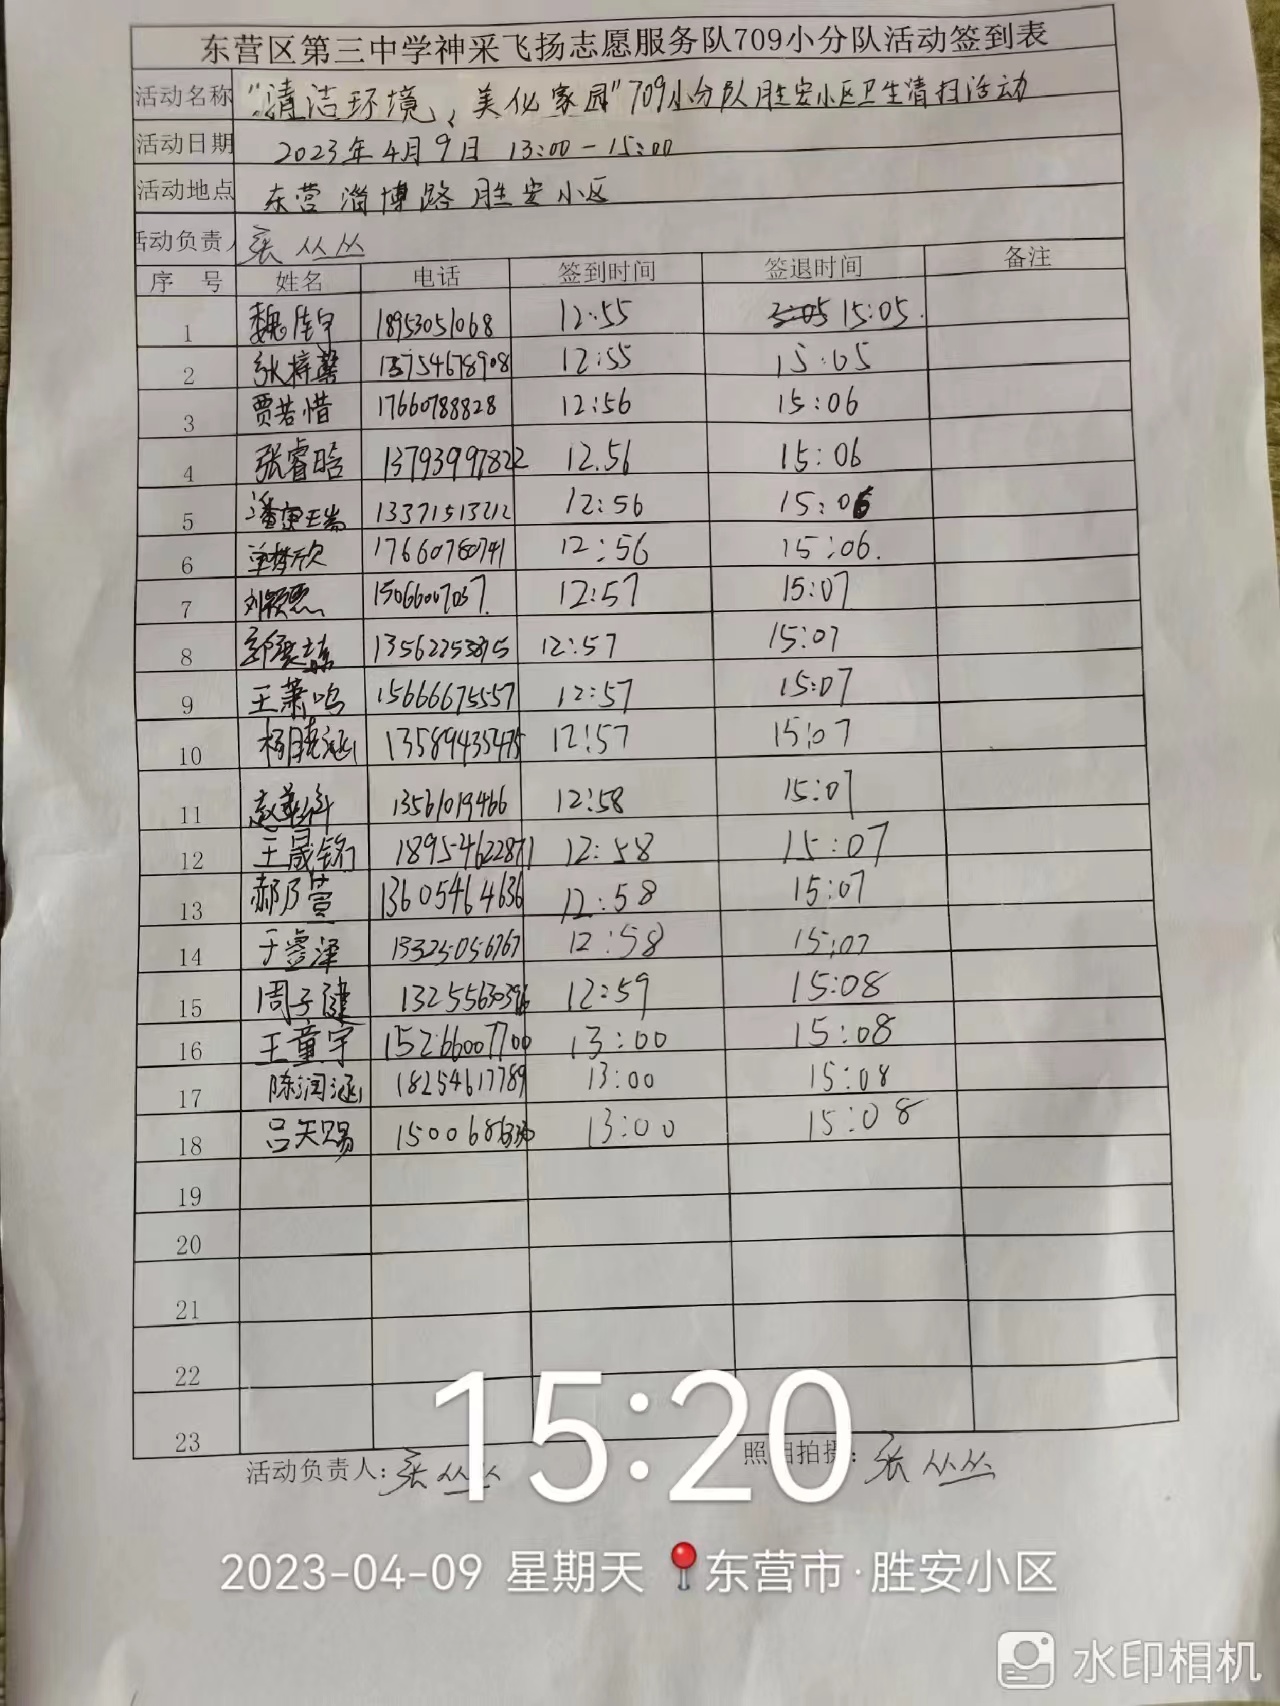 东营区第三中学神采飞扬志愿服务队709小分队活动签到表
活动名称 "清洁环境、美化家园"709小分队胜安小区卫生清扫活动
活动日期 2023年4月9日 13:00-15:00
活动地点 东营淄博路胜安小区
活动负责人 张丛丛
序号 姓名 电话 签到时间 签退时间 备注
1 魏佳宇 18953051068 12:55 15:05.
2 张梓馨 13754678908 12:55 15:05
3 贾若惜 17660788828 12:56 15:06
4 张睿晗 13793997822 12.56 15:06
5 13371513212 12:56 15:06
6 单梦欣 17660780741 12:56 15:06.
7 刘颖 12:57 15:07
8 郭 12:57 15:07
9 王萧鸣 15666675557 12:57 15:07
10 杨晓涵 13589435475 12:57 15:07
11 赵 13561019466 12:58 15:07
12 王晟铭 18954622871 12:58 15:07
13 郝乃萱 13605464636 12:58 15:07
14 于睿泽 13325056767 12:58 15:07
15 周子健 12:59 15:08
16 王童宇 15266007700 13:00 15:08
17 陈润涵 18254617789 13:00 15:08
18 吕天赐 13:00 15:08
19
20
21
22
23
活动负责人:张丛丛 照相拍摄:张丛丛
15:20
2023-04-09 星期天 东营市·胜安小区
水印相机